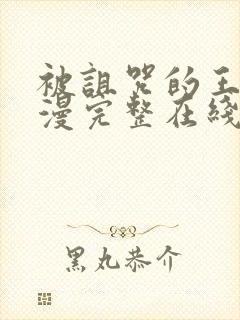 被詛咒的王
漫完整在綫
黑丸恭介